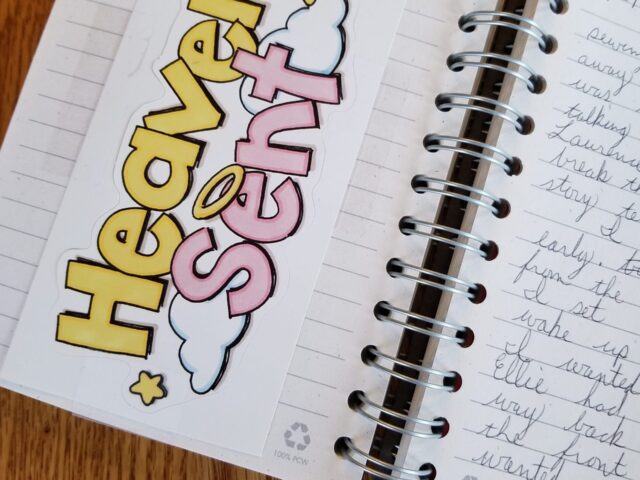 Heaven
Sent
100% PCW
seven
away
was
talking
Lauren
break
story
I
early.
from the
I set
wake up
I wanted
Ellie had
way back
the front
wanted